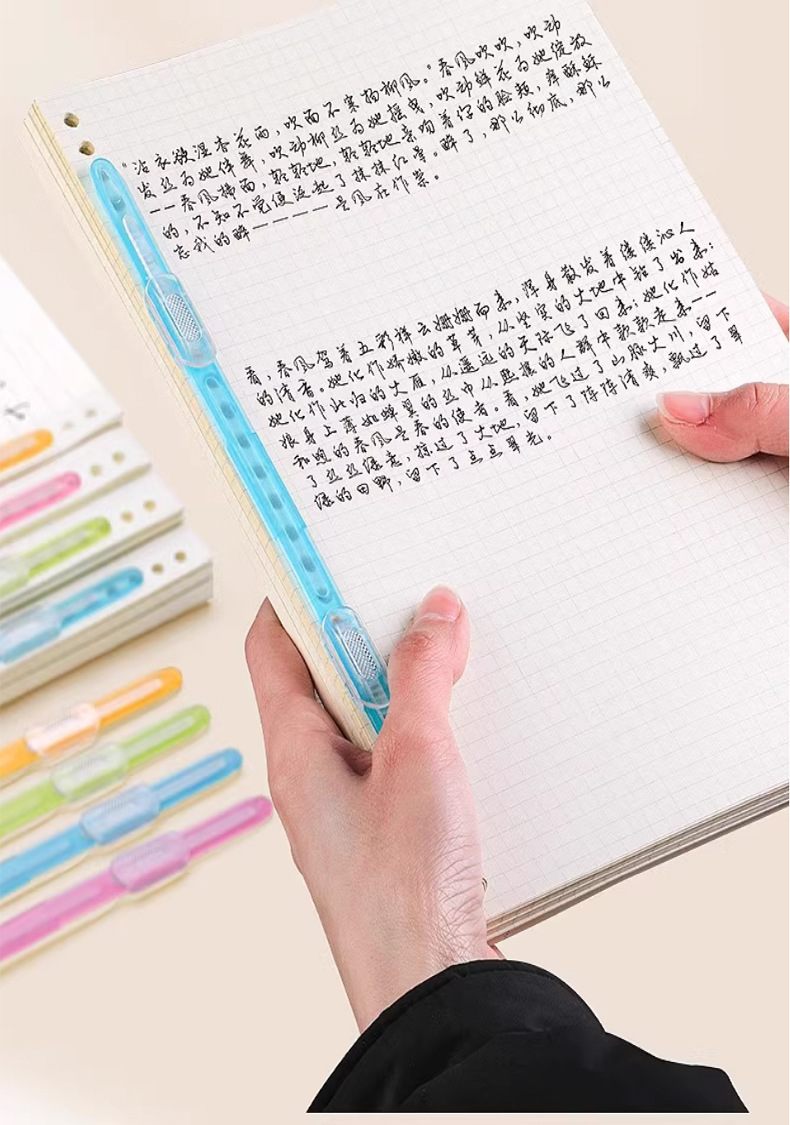 "沾衣欲湿杏花雨，吹面不寒杨柳风。"春风吹吹，吹动
发丝为她伴舞，吹动柳丝为她摇曳，吹动鲜花为她绽放
——春风拂面，轻轻地，轻轻地亲吻着你的脸颊，痒酥酥
的，不知不觉便泛起了抹抹红晕。醉了，那么彻底，那么
忘我的醉————是风在作祟。
看，春风驾着五彩祥云姗姗而来，浑身散发着缕缕沁人
的清香。她化作娇嫩的草芽，从坚实的大地中钻了出来；
她化作北归的大雁，从遥远的天际飞了回来；她化作姑
娘身上薄如蝉翼的丝巾从熙攘的人群中款款走来——
和煦的春风是春的使者。看，她飞过了山脉大川，留下
了丝丝绿意，掠过了大地，留下了阵阵清爽，飘过了翠
绿的田野，留下了点点翠光。